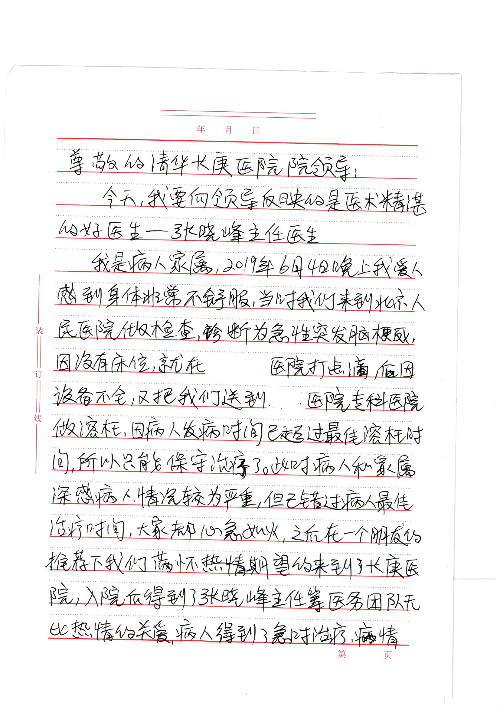 年 月 日
尊敬的清华长庚医院院领导：
今天，我要向领导反映的是医术精湛
的好医生——张晓峰主任医生
我是病人家属，2019年6月4日晚上我爱人
感到身体非常不舒服，当时我们来到北京人
民医院做检查，诊断为急性突发脑梗威，
因没有床位，就在 医院打点滴，但因
设备不全，又把我们送到.. 医院专科医院
做溶栓，因病人发病时间已超过最佳溶栓时
间，所以只能保守治疗了。此时病人和家属
深感病人情况较为严重，但已错过病人最佳
治疗时间，大家都心急如火，之后在一个朋友的
推荐下我们满怀热情期望的来到了长庚医
院，入院后得到了张晓峰主任等医务团队无
比热情的关爱，病人得到了急时治疗，病情
第 页
装
订
线